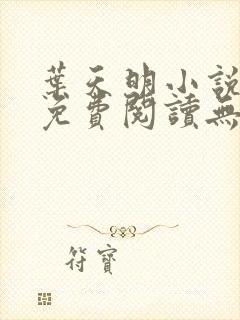 葉天明小說
免費閱讀無
符寶